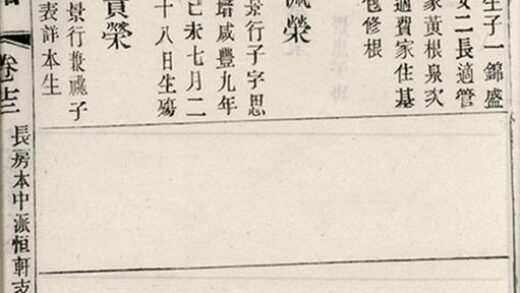 生子一錦盛
女二長適管
家黃根泉次
適費家住基
包修根
榮
景行子字思
培咸豐九年
己未七月二
十八日生殤
貢榮
景行兼祧子
表詳本生
卷
長房本中派恒軒支